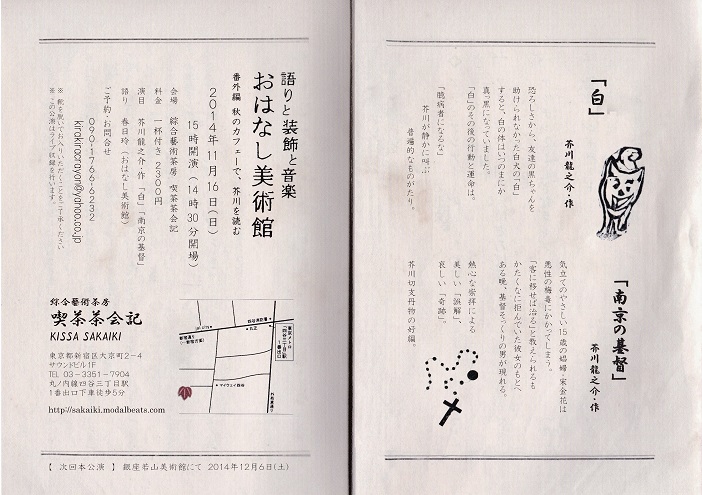 「白」
芥川龍之介・作
恐ろしさから、友達の黒ちゃんを
助けられなかった白犬の「白」
すると、白の体はいつのまにか
真っ黒になっていました。
「白」のその後の行動と運命は。
「臆病者になるな」
芥川が静かに叫ぶ
普遍的なものがたり。
「南京の基督」
芥川龍之介・作
気立てのやさしい15歳の娼婦・宋金花は
悪性の梅毒にかかってしまう。
「客に移せば治る」と教えられるも
かたくなに拒んでいた彼女のもとへ
ある晩、基督そっくりの男が現れる。
熱心な崇拝による
美しい「誤解」、
哀しい「奇跡」。
芥川切支丹物の好編。
語りと装飾と音楽
おはなし美術館
番外編 秋のカフェーで、芥川を読む
2014年11月16日(日)
15時開演(14時30分開場)
会場 綜合藝術茶房 喫茶茶会記
料金 一杯付き2300円
演目 芥川龍之介・作「白」「南京の基督」
語り 春日玲(おはなし美術館)
ご予約・お問合せ
090-1766-6232
kirokirocrayon@yahoo.co.jp
※ 靴を脱いでお入りいただくことをご了承ください
※ この公演はライブ収録を行います。
綜合藝術茶房
喫茶茶会記
KISSA SAKAIKI
東京都新宿区大京町2-4
サウンドビル1F
TEL 03-3351-7904
丸ノ内線四谷三丁目駅
1番出口下車徒歩5分
http://sakaiki.modalbeats.com
【 次回本公演 】 銀座若山美術館にて 2014年12月6日(土)